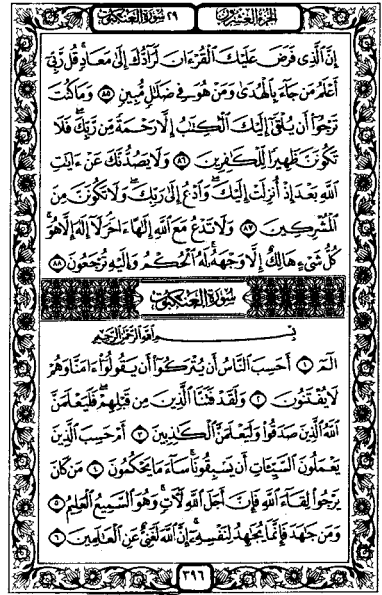 الجزء العشرون ٢٩ سورة العنكبوت
إِنَّ ٱلَّذِى فَرَضَ عَلَيْكَ ٱلْقُرْءَانَ لَرَآدُّكَ إِلَىٰ مَعَادٍۢ ۚ قُل رَّبِّىٓ
أَعْلَمُ مَن جَآءَ بِٱلْهُدَىٰ وَمَنْ هُوَ فِى ضَلَـٰلٍۢ مُّبِينٍۢ ٨٥ وَمَا كُنتَ
تَرْجُوٓا۟ أَن يُلْقَىٰٓ إِلَيْكَ ٱلْكِتَـٰبُ إِلَّا رَحْمَةًۭ مِّن رَّبِّكَ ۖ فَلَا
تَكُونَنَّ ظَهِيرًۭا لِّلْكَـٰفِرِينَ ٨٦ وَلَا يَصُدُّنَّكَ عَنْ ءَايَـٰتِ
ٱللَّهِ بَعْدَ إِذْ أُنزِلَتْ إِلَيْكَ ۖ وَٱدْعُ إِلَىٰ رَبِّكَ ۖ وَلَا تَكُونَنَّ مِنَ
ٱلْمُشْرِكِينَ ٨٧ وَلَا تَدْعُ مَعَ ٱللَّهِ إِلَـٰهًا ءَاخَرَ ۘ لَآ إِلَـٰهَ إِلَّا هُوَ ۚ
كُلُّ شَىْءٍ هَالِكٌ إِلَّا وَجْهَهُۥ ۚ لَهُ ٱلْحُكْمُ وَإِلَيْهِ تُرْجَعُونَ ٨٨
سورة العنكبوت
بِسْمِ ٱللَّهِ ٱلرَّحْمَـٰنِ ٱلرَّحِيمِ
الٓمٓ ١ أَحَسِبَ ٱلنَّاسُ أَن يُتْرَكُوٓا۟ أَن يَقُولُوٓا۟ ءَامَنَّا وَهُمْ
لَا يُفْتَنُونَ ٢ وَلَقَدْ فَتَنَّا ٱلَّذِينَ مِن قَبْلِهِمْ ۖ فَلَيَعْلَمَنَّ
ٱللَّهُ ٱلَّذِينَ صَدَقُوا۟ وَلَيَعْلَمَنَّ ٱلْكَـٰذِبِينَ ٣ أَمْ حَسِبَ ٱلَّذِينَ
يَعْمَلُونَ ٱلسَّيِّـَٔاتِ أَن يَسْبِقُونَا ۚ سَآءَ مَا يَحْكُمُونَ ٤ مَن كَانَ
يَرْجُوا۟ لِقَآءَ ٱللَّهِ فَإِنَّ أَجَلَ ٱللَّهِ لَـَٔاتٍۢ ۚ وَهُوَ ٱلسَّمِيعُ ٱلْعَلِيمُ ٥
وَمَن جَـٰهَدَ فَإِنَّمَا يُجَـٰهِدُ لِنَفْسِهِۦٓ ۚ إِنَّ ٱللَّهَ لَغَنِىٌّ عَنِ ٱلْعَـٰلَمِينَ ٦
٣٩٦